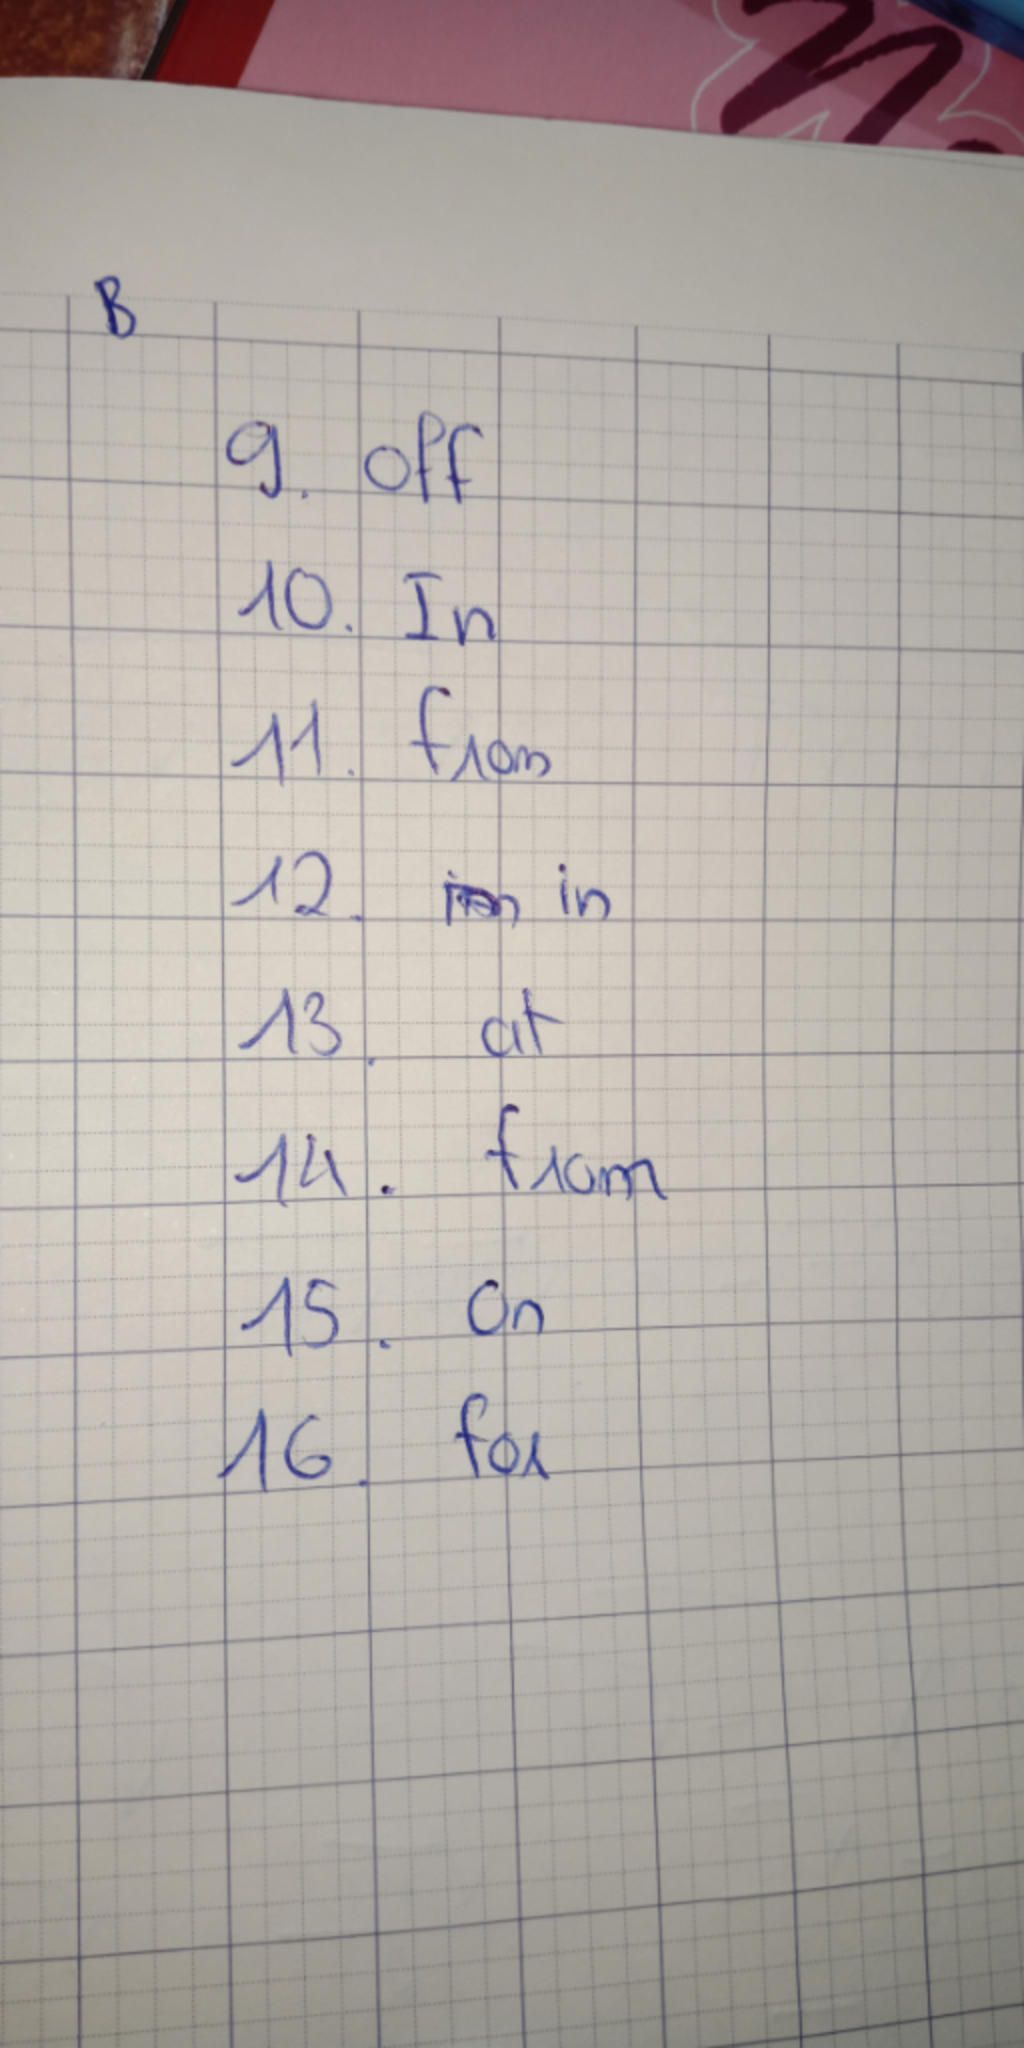 n.
B
9. off
10. In
11. from
12. in
13. at
14. from
15. On
16. for